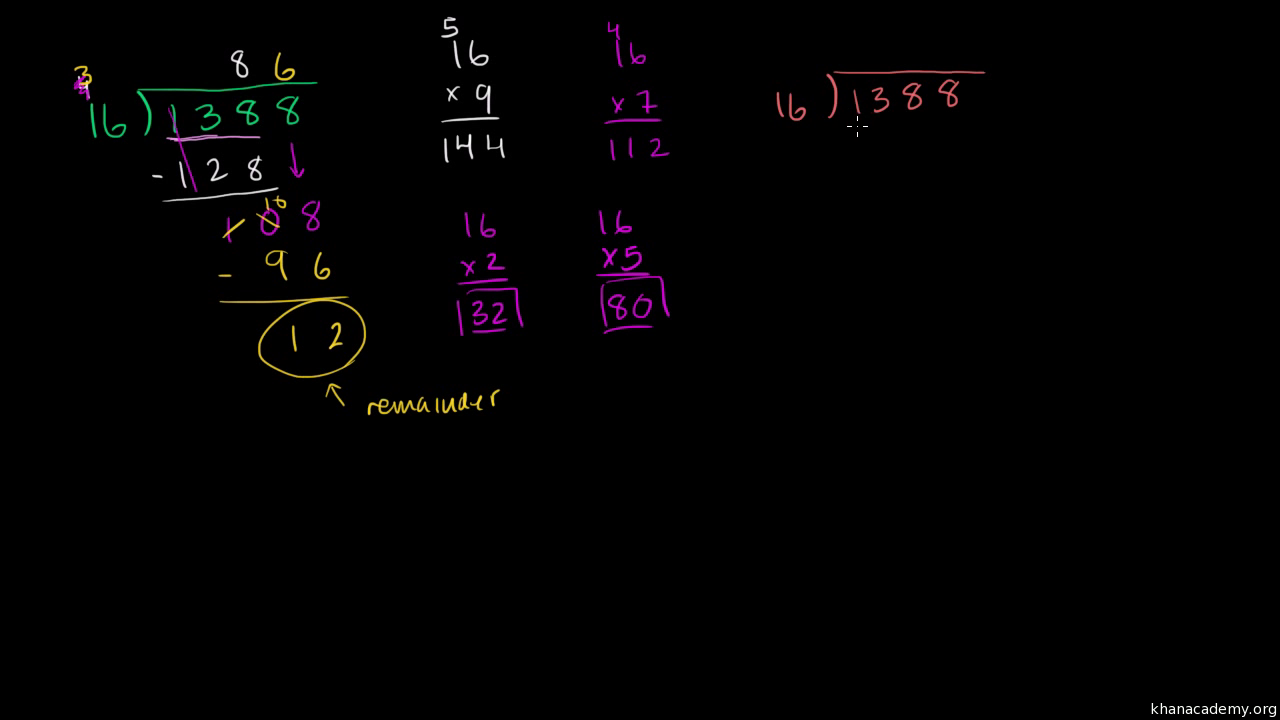 86
3
16)1388
-128
108
10
-96
12
remainder
5
16
x 9
144
4
16
x 7
112
16
x 2
32
16
x 5
80
16)1388
khanacademy.org